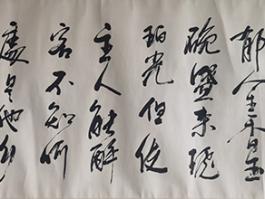 郁金香玉
碗盛来琥
珀光但使
主人能醉
客不知何
處是他乡